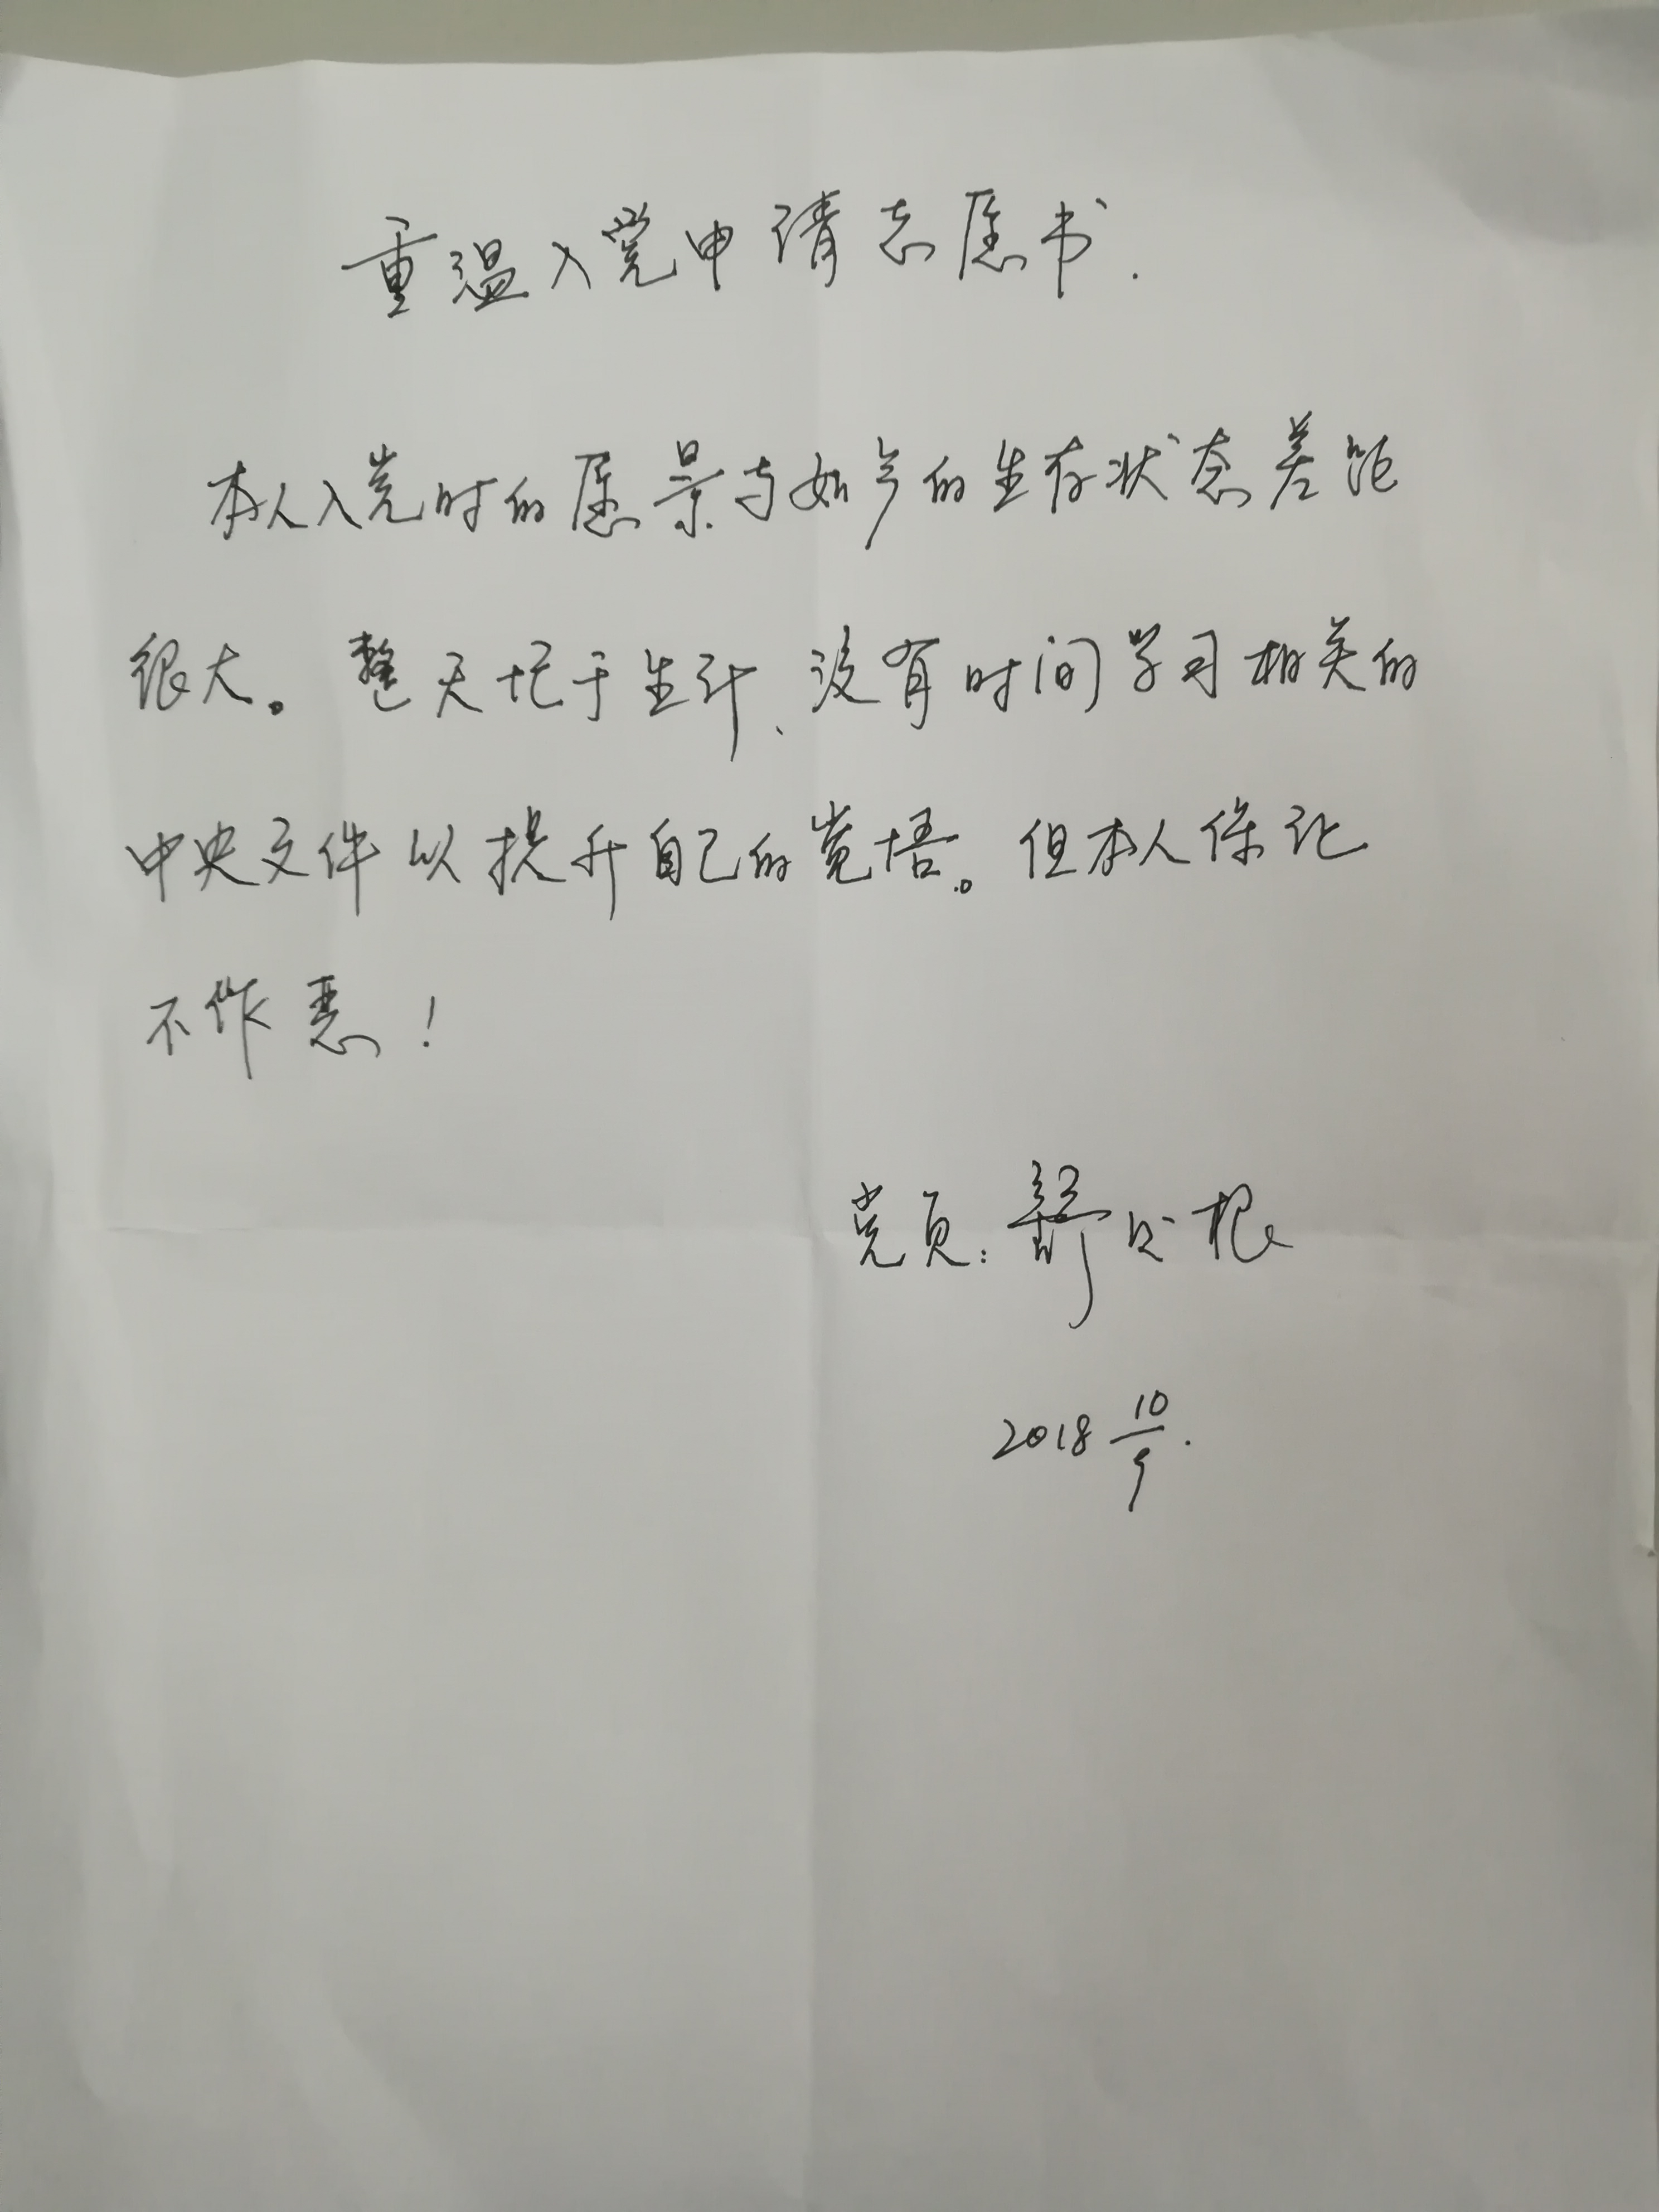 重温入党申请志愿书.
本人入党时的愿景与如今的生存状态差距
很大。整天忙于生计、没有时间学习相关的
中央文件以提升自己的觉悟。但本人保证
不作恶！
党员：舒 根
2018 10/9.